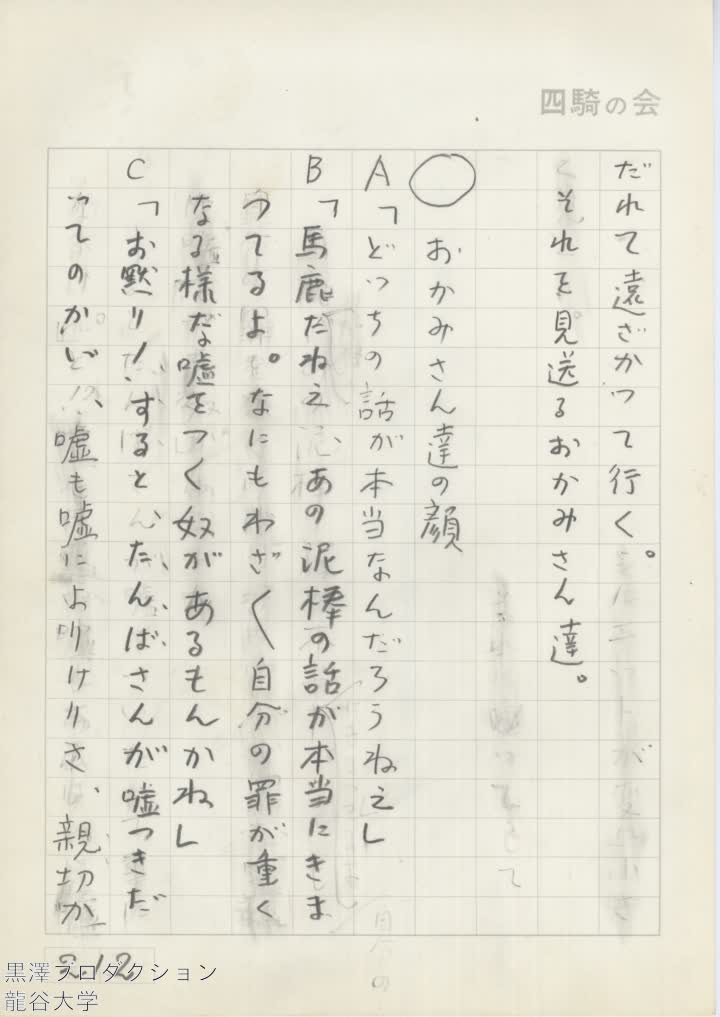 四騎の会
だれて遠ざかって行く。
それを見送るおかみさん達。
◯ おかみさん達の顔
A「どっちの話が本当なんだろうねえ」
B「馬鹿だねえ、あの泥棒の話が本当にきま
ってるよ。なにもわざ〱自分の罪が重く
なる様な嘘をつく奴があるもんかね」
C「お黙り！、すると、たんばさんが嘘つきだ
ってのかい、嘘も嘘によりけりさ、親切が
2.12
黒澤プロダクション
龍谷大学